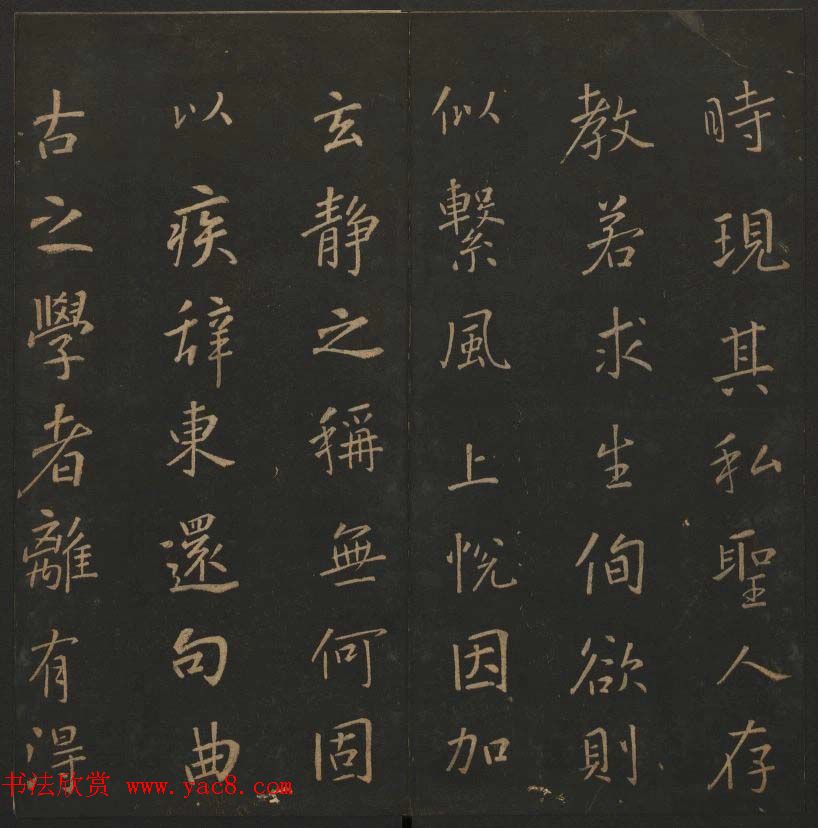 時現其私聖人存
教若求生侚欲則
似繫風上悅因加
玄靜之稱無何固
以疾辭東還句曲
古之學者離有得
书法欣赏 www.yac8.com